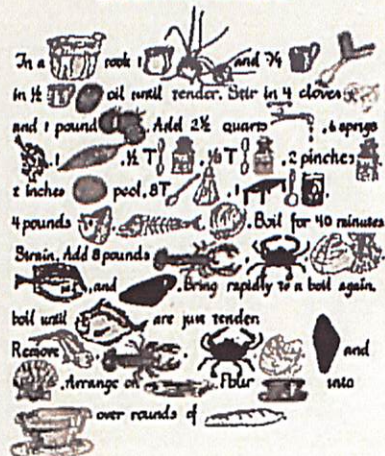 In a cook 1 and ¾
in ½ oil until tender. Stir in 4 cloves
and 1 pound . Add 2½ quarts , 6 sprigs
, 1 , ½ T , ⅛ T , 2 pinches
2 inches peel, 8T , 1
4 pounds , , . Boil for 40 minutes
Strain. Add 8 pounds , ,
, and . Bring rapidly to a boil again,
boil until are just tender.
Remove , , and
. Arrange on . Pour into
over rounds of .